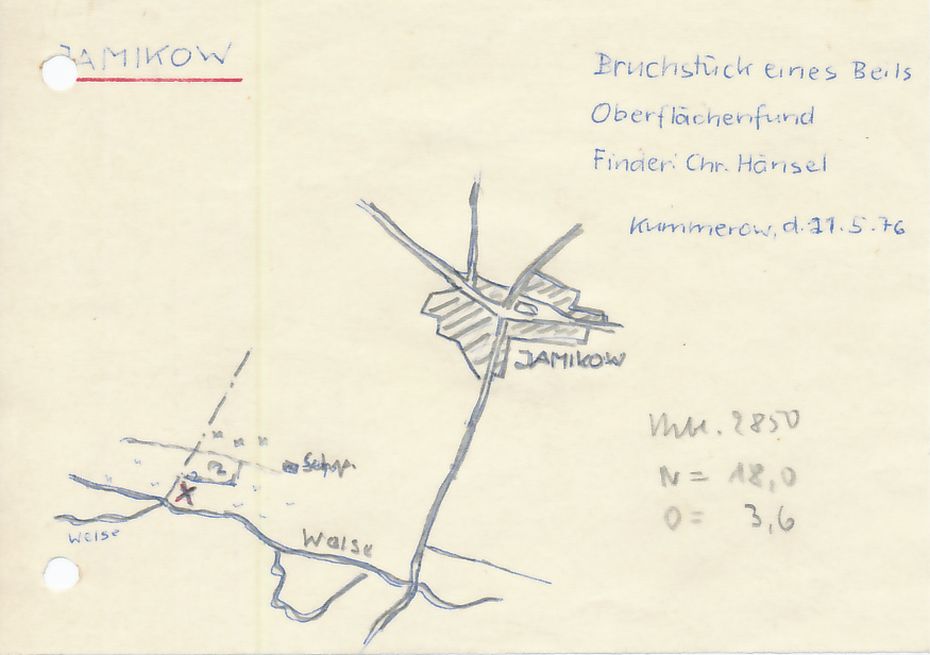 JAMIKOW
Bruchstück eines Beils
Oberflächenfund
Finder: Chr. Hänsel
Kummerow, d. 21.5.76
JAMIKOW
Schpr.
Welse
Welse
2850
N = 18,0
O = 3,6